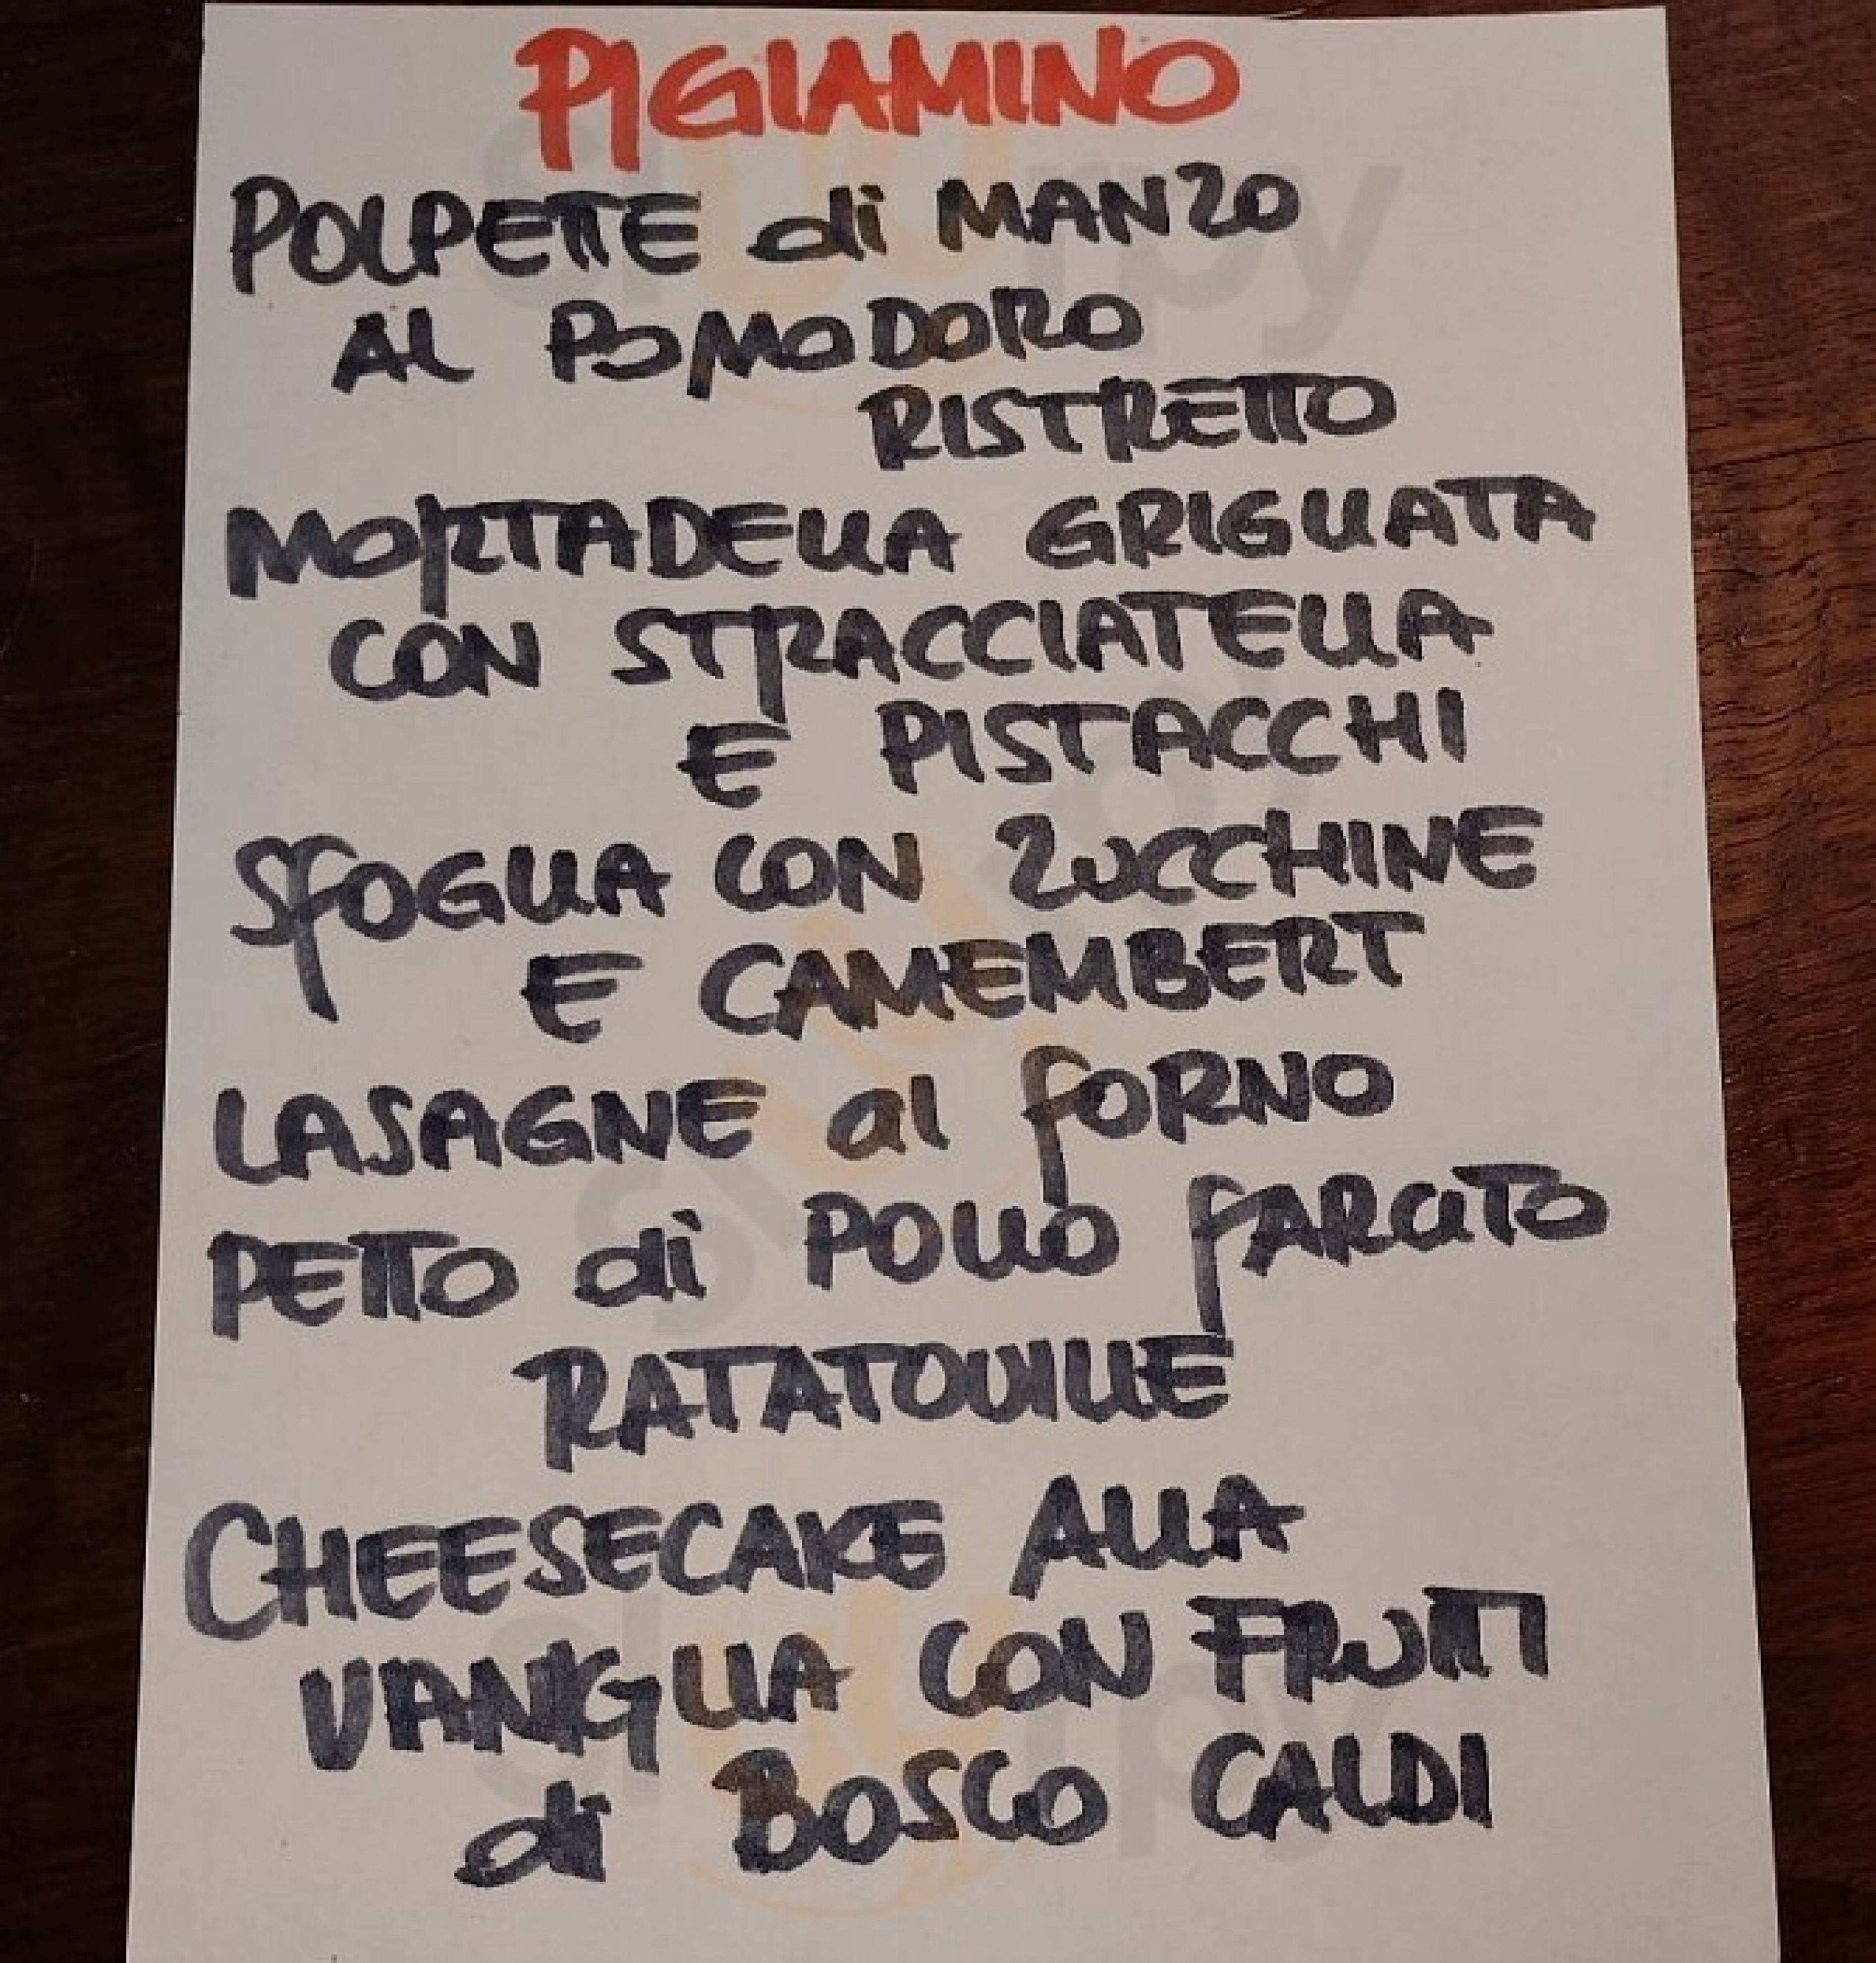 PIGIAMINO
POLPETTE di MANZO
AL POMODORO
RISTRETTO
MORTADELLA GRIGLIATA
CON STRACCIATELLA
E PISTACCHI
SFOGLIA CON ZUCCHINE
E CAMEMBERT
LASAGNE al fORNO
PETTO di POLLO fARCITO
RATATOUILLE
CHEESECAKE ALLA
VANIGLIA CON FRUTTI
di BOSCO CALDI